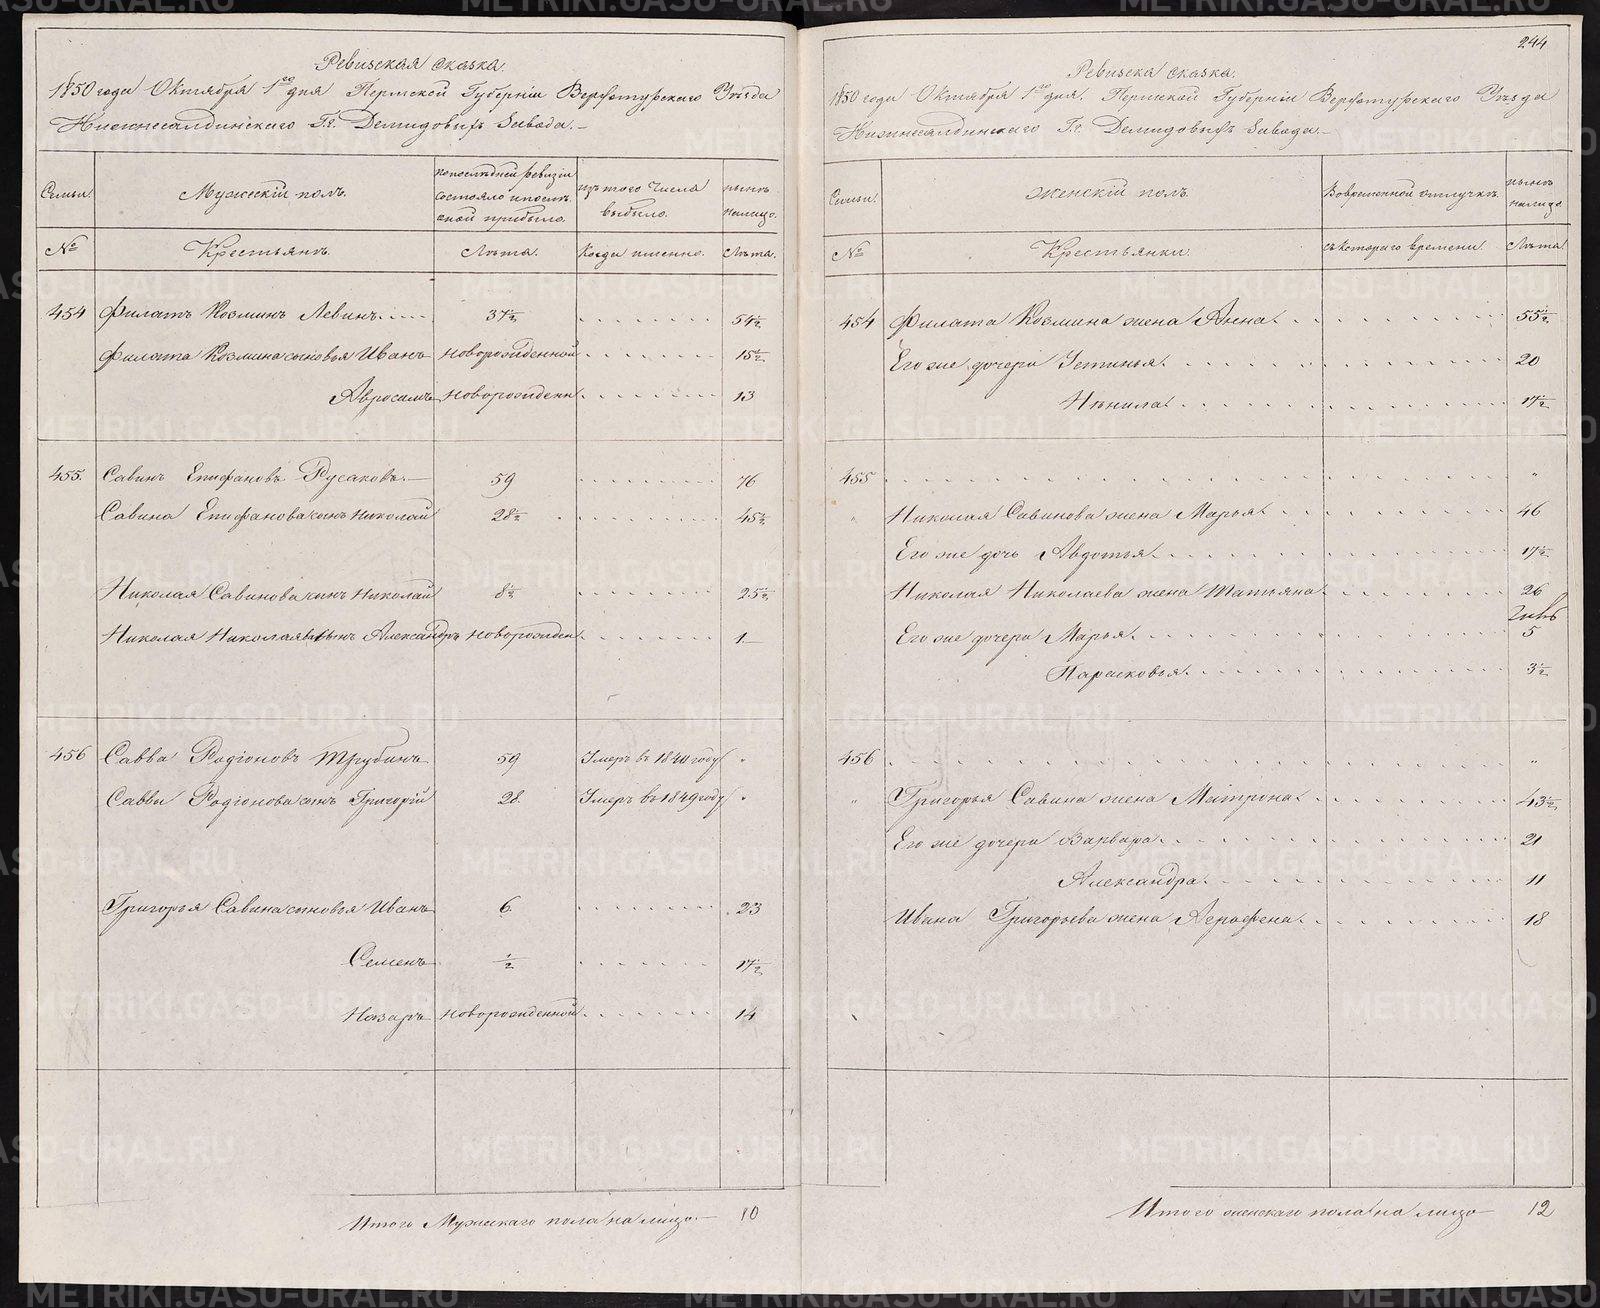 Ревизская сказка.
1850 года Октября 1го дня Пермской Губерніи Верхотурскаго Уѣзда
Нижнесалдинскаго Гг. Демидовыхъ Завода.
Семьи.
Мужескій полъ.
по последней ревизіи
состояло и послѣ
оной прибыло.
изъ того числа
выбыло.
нынѣ
налицо.
№
Крестьянъ.
Лѣта.
Когда именно.
Лѣта.
454 Филатъ Козминъ Левинъ 37½ 54½
Филата Козмина сыновья Иванъ Новорожденной 15½
Авросимъ Новорожденн 13
455. Савинъ Епифановъ Русаковъ. 59 76
Савина Епифанова сынъ Николай 28½ 45½
Николая Савинова сынъ Николай 8½ 25½
Николая Николаева сынъ Александръ Новорожден 1
456 Савва Родіоновъ Трубинъ 59 Умеръ въ 1840 году "
Саввы Родіонова сынъ Григорій 28. Умеръ въ 1849 году "
Григорья Савина сыновья Иванъ 6 23
Семенъ ½ 17½
Назаръ Новорожденной 14
Итого Мужескаго пола на лицо 10
244
Ревизска сказка.
1850 года Октября 1го дня. Пермской Губерніи Верхотурскаго Уѣзда
Нижнесалдинскаго Гг. Демидовыхъ Завода.
Семьи.
Женскій полъ.
Во временной отлучкѣ.
нынѣ
налицо
№
Крестьянки.
съ котораго времени
Лѣта
454 Филата Козмина жена Анна. 55½
Его же дочери Устинья. 20
Нѣнила. 17½
455 "
" Николая Савинова жена Марья. 46
Его же дочь Авдотья. 17½
Николая Николаева жена Татьяна. 26
Его же дочери Марья. 5
Парасковья. 3½
456 "
" Григорья Савина жена Матрона. 43½
Его же дочери Варвара. 21
Александра. 11
Ивана Григорьева жена Аграфена. 18
Итого женскаго пола на лицо 12
METRIKI.GASO-URAL.RU